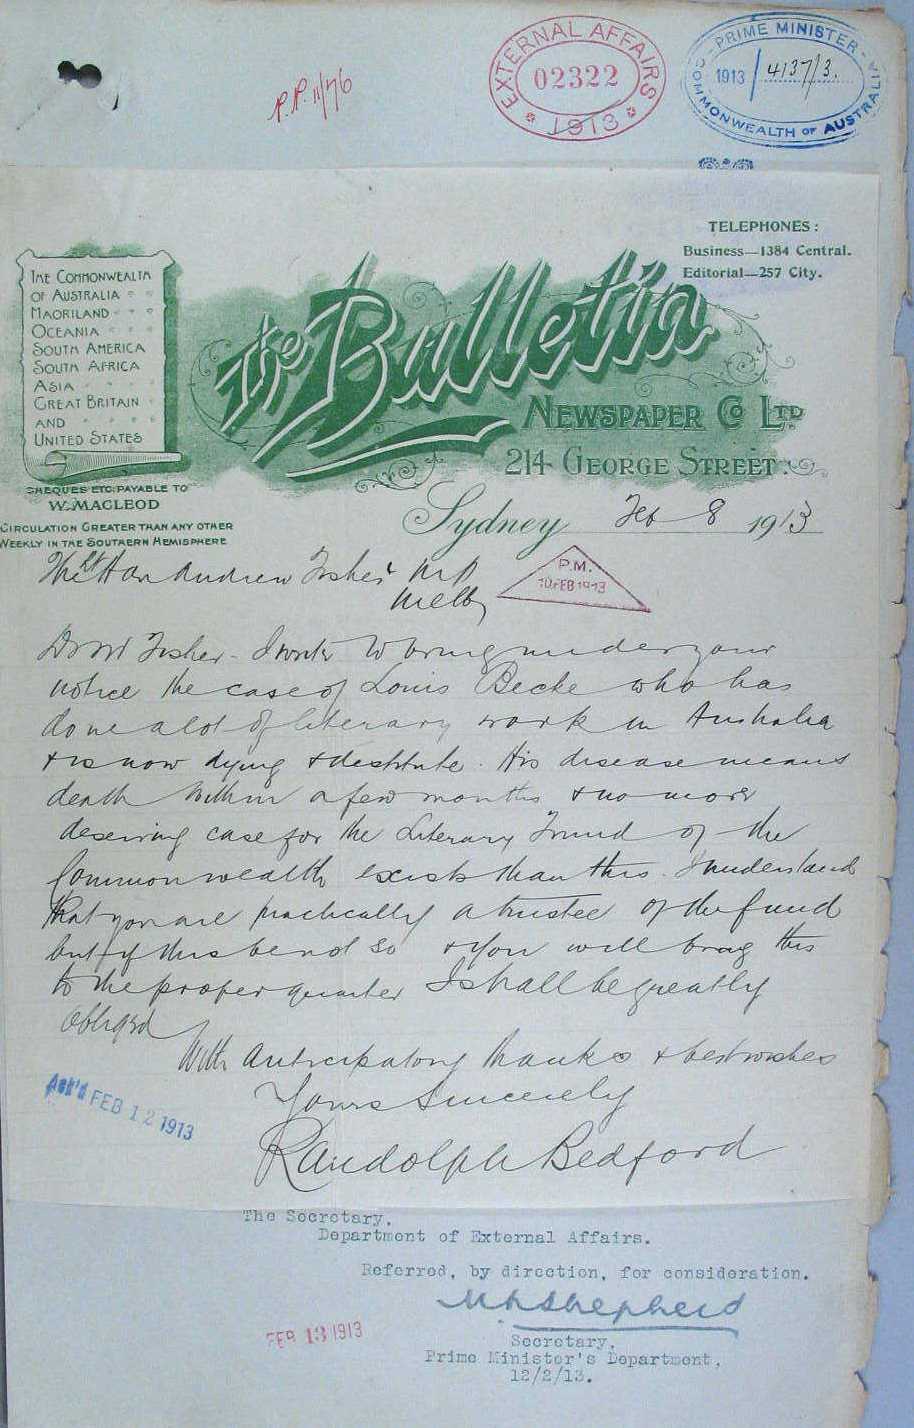 P.P. 11/76
EXTERNAL AFFAIRS
02322
1913
PRIME MINISTER
1913 / 4137/3.
COMMONWEALTH OF AUSTRALIA
TELEPHONES:
Business—1384 Central.
Editorial—257 City.
THE COMMONWEALTH
OF AUSTRALIA
MAORILAND
OCEANIA
SOUTH AMERICA
SOUTH AFRICA
ASIA
GREAT BRITAIN
AND
UNITED STATES
The Bulletin
NEWSPAPER CO LTD.
214 GEORGE STREET
CHEQUES ETC. PAYABLE TO
W. MACLEOD
CIRCULATION GREATER THAN ANY OTHER
WEEKLY IN THE SOUTHERN HEMISPHERE
Sydney Feb 8 1913
The Rt Hon Andrew Fisher MP
Melb
P.M.
10 FEB 1913
Dr Mr Fisher - I write to bring under your
notice the case of Louis Becke who has
done a lot of literary work in Australia
& is now dying & destitute. His disease means
death within a few months & no more
deserving case for the Literary Fund of the
Commonwealth exists than this. I understand
that you are practically a trustee of the fund
but if this be not so & you will bring this
to the proper quarter I shall be greatly
obliged
With anticipatory thanks & best wishes
Yours Sincerely
Randolph Bedford
Ack'd FEB 12 1913
The Secretary,
Department of External Affairs.
Referred, by direction, for consideration.
M L Shepherd
FEB 13 1913
Secretary,
Prime Minister's Department,
12/2/13.